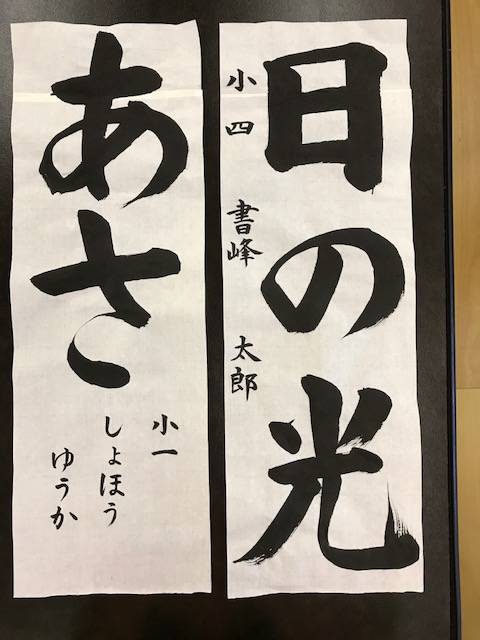 日の光
小四 書峰 太郎
あさ
小一
しょほう
ゆうか